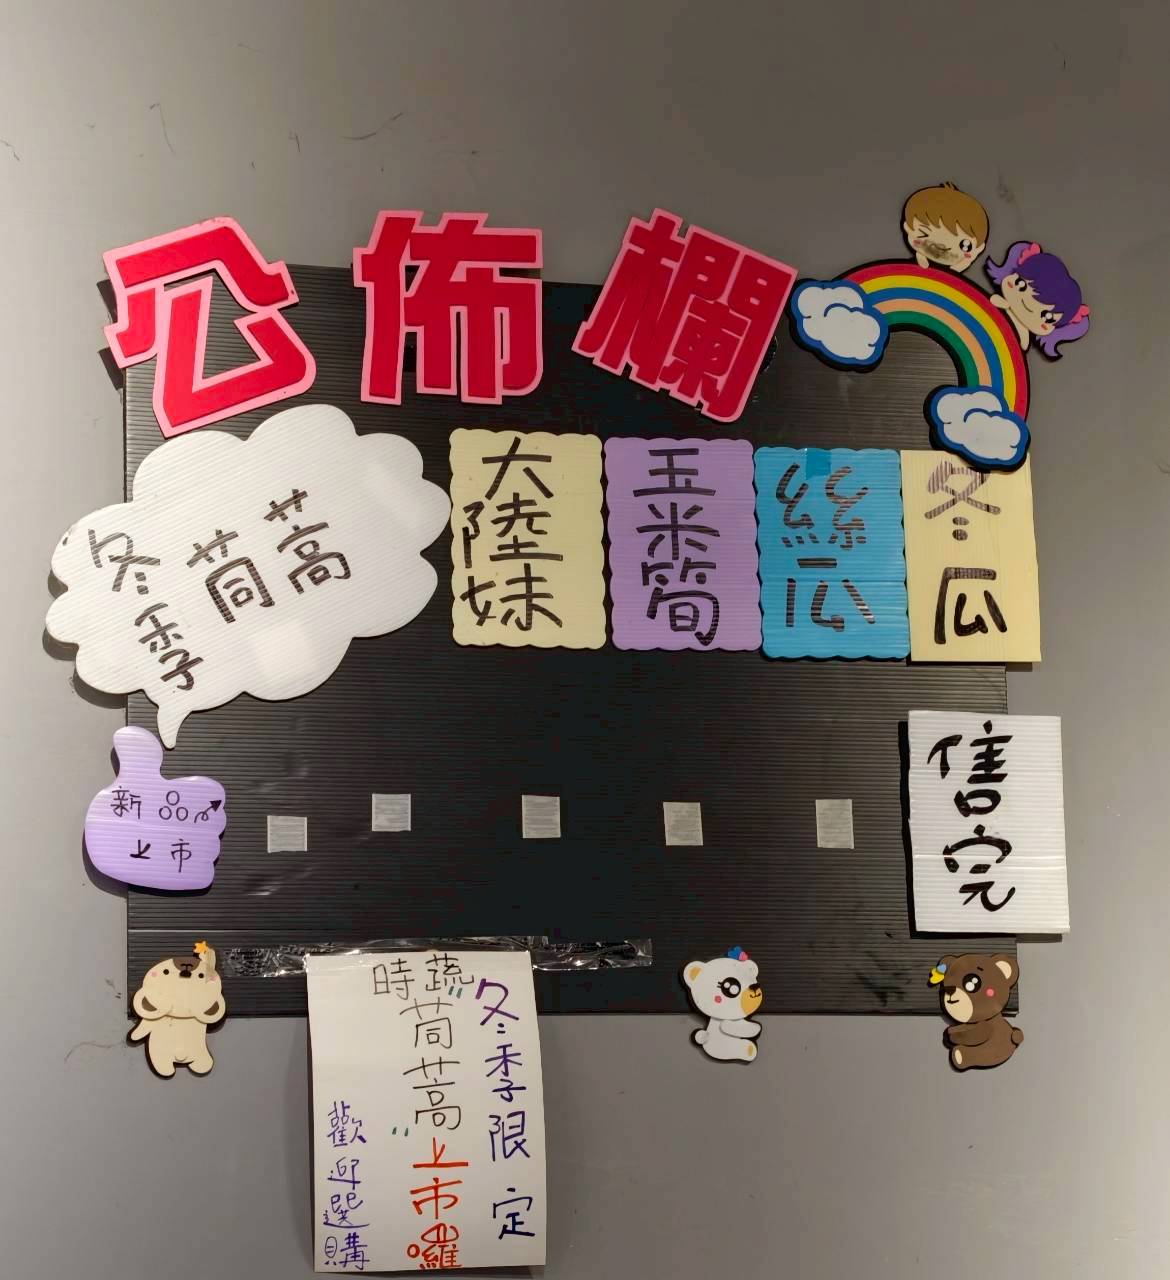 公佈欄
冬季
茼蒿
大陸妹
玉米筍
絲瓜
冬瓜
新品
上市
售完
冬季限定
時蔬"茼蒿"上市囉
歡迎選購